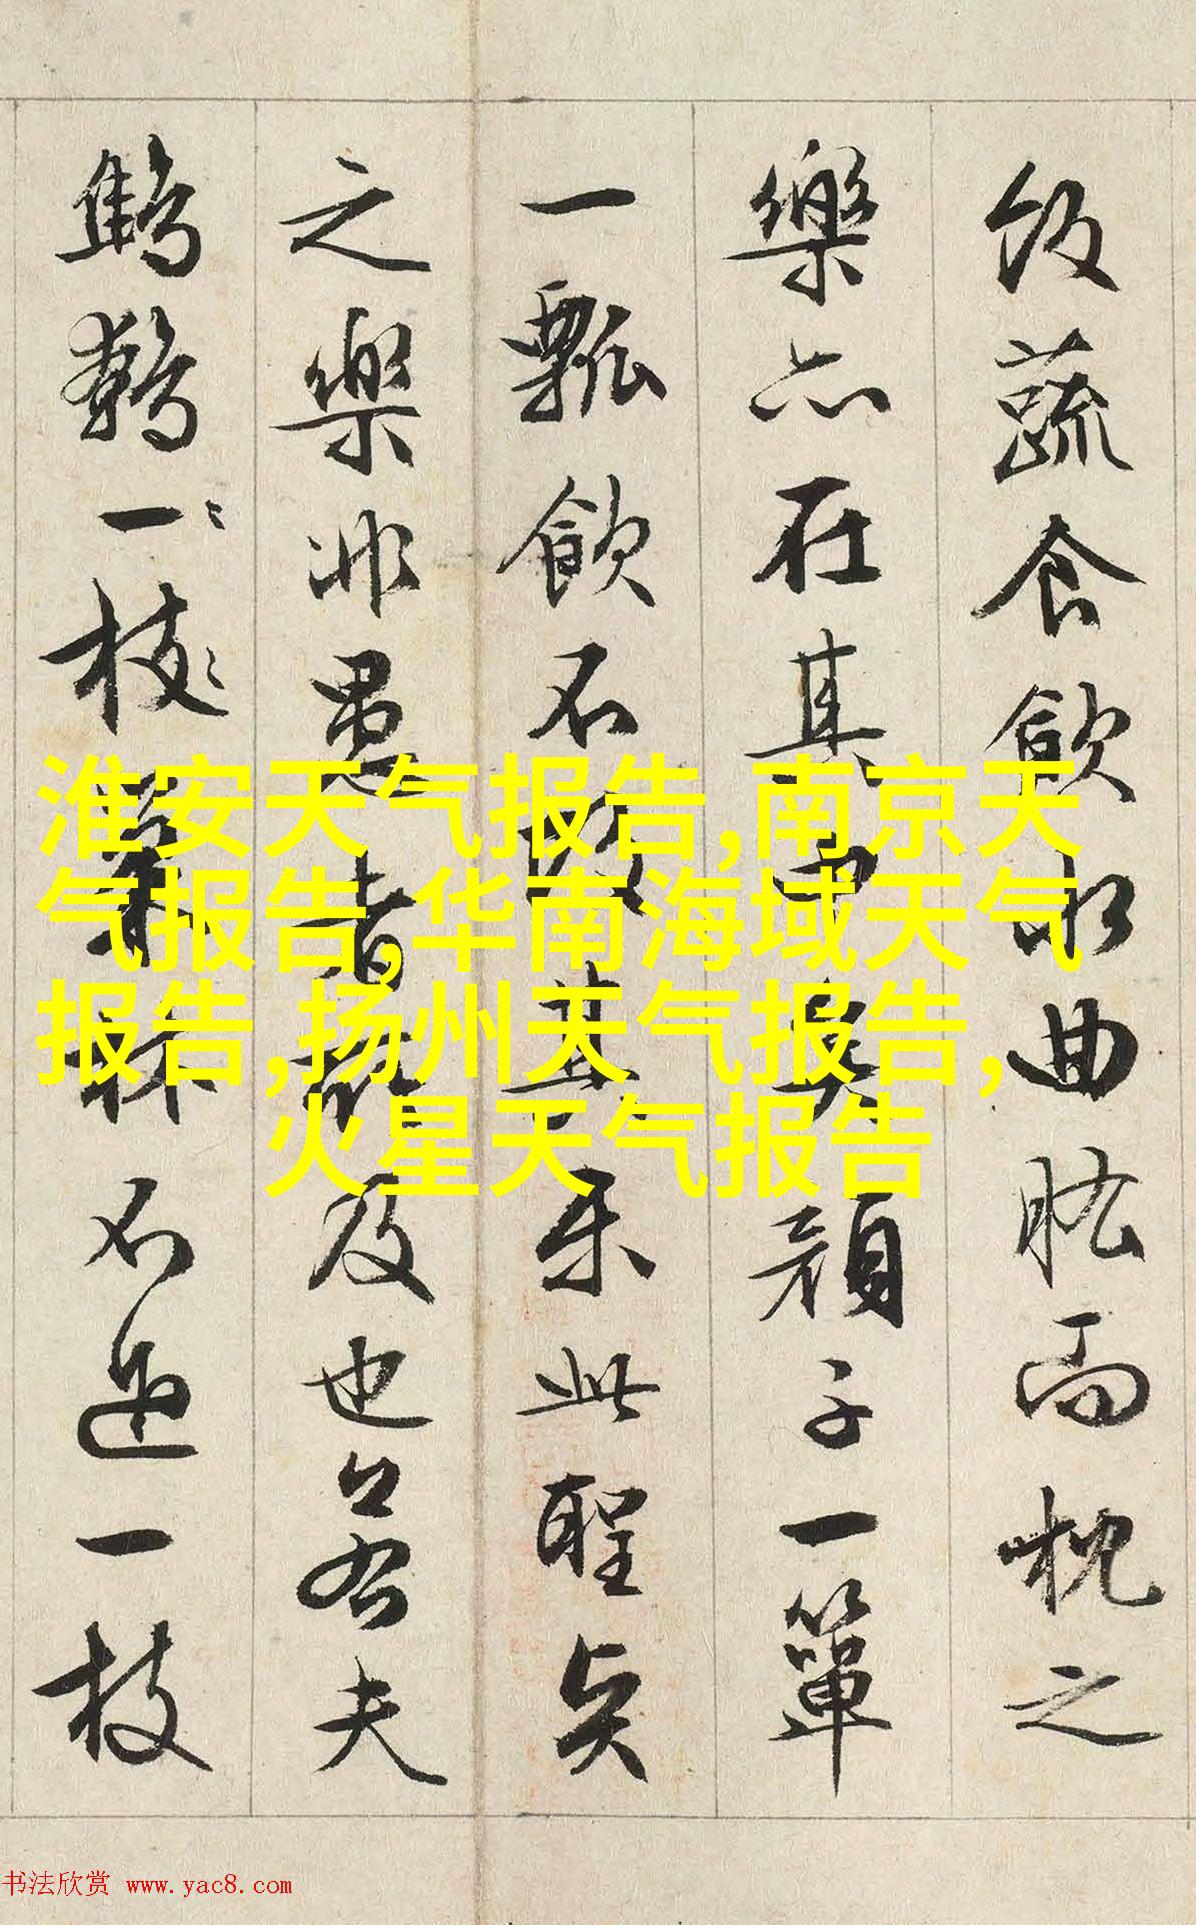 飯蔬食飲水曲肱而枕之
樂亦在其中矣顏子一簞
一瓢飲不改其乐此聖賢
之樂非愚者所及也若夫
鷦鷯一枝巢林不過一枝
淮安天气报告,南京天
气报告,华南海域天气
报告,扬州天气报告,
火星天气报告
书法欣赏 www.yac8.com